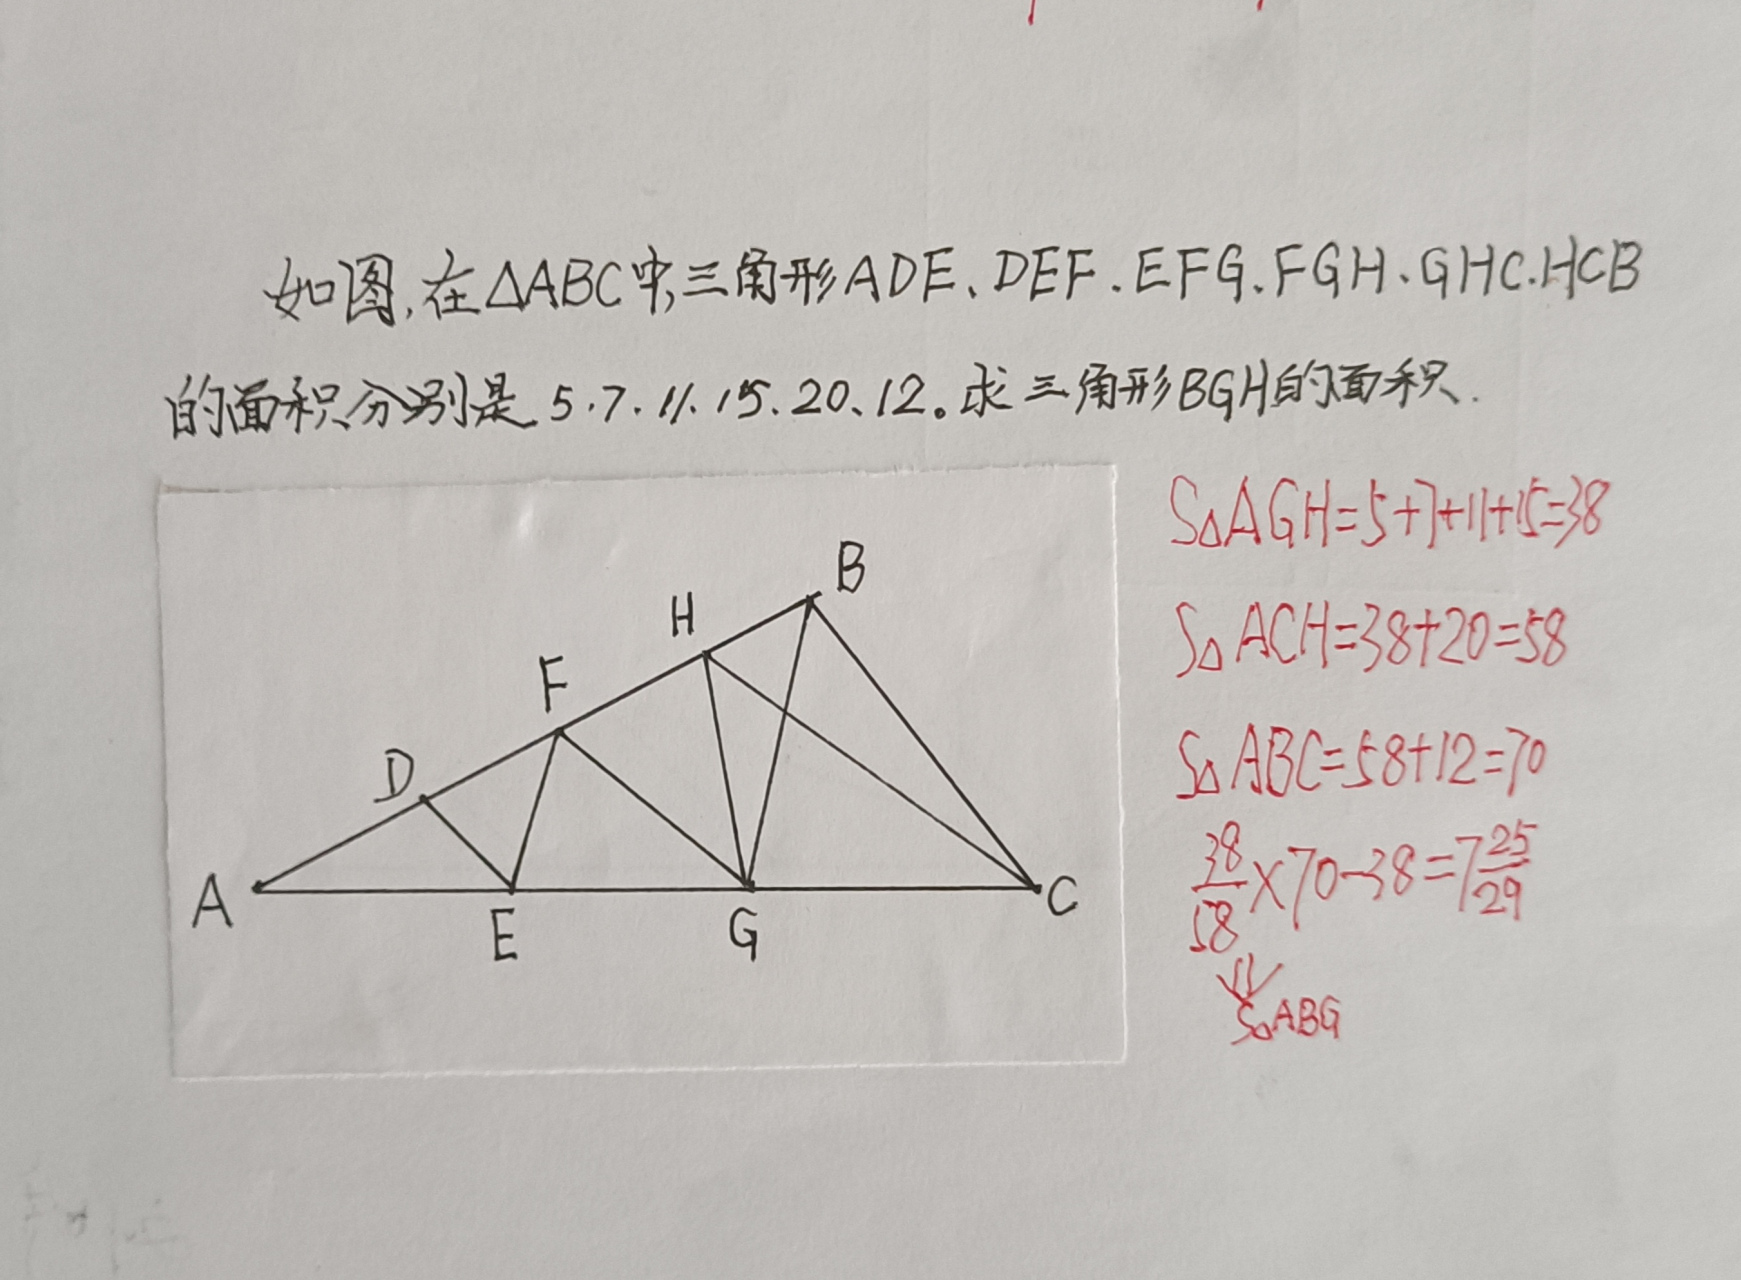 如图,在△ABC中,三角形ADE、DEF.EFG.FGH.GHC.HCB
的面积分别是5.7.11.15.20、12。求三角形BGH的面积.
S△AGH=5+7+11+15=38
S△ACH=38+20=58
S△ABC=58+12=70
38/58×70-38=7 25/29
S△ABG
B
H
F
D
A
E
G
C